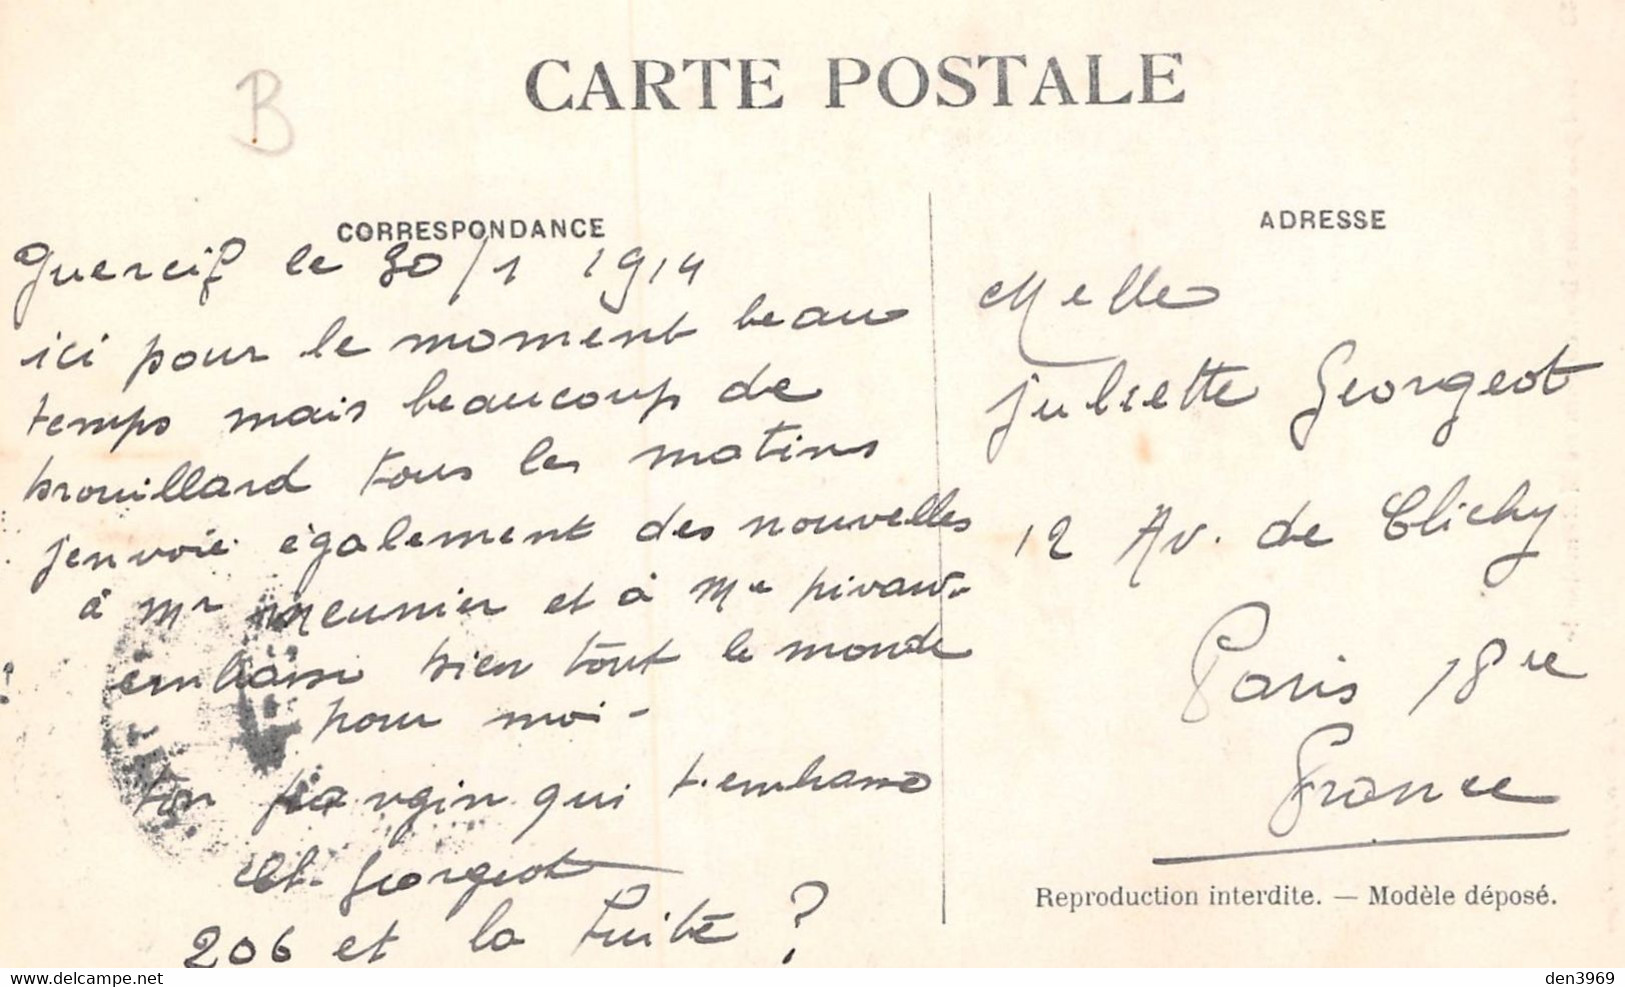 B
CARTE POSTALE
CORRESPONDANCE
Guercif le 30/1 1914
ici pour le moment beau
temps mais beaucoup de
brouillard tous les matins
j'envoie également des nouvelles
à Mr meunier et à Mr
embrasse bien tout le monde
pour moi -
ton frangin qui t'embrasse
Ch. Georgeot
206 et la fuite ?
ADRESSE
Melle
Juliette Georgeot
12 Av. de Clichy
Paris 18re
France
Reproduction interdite. — Modèle déposé.
www.delcampe.net
den3969